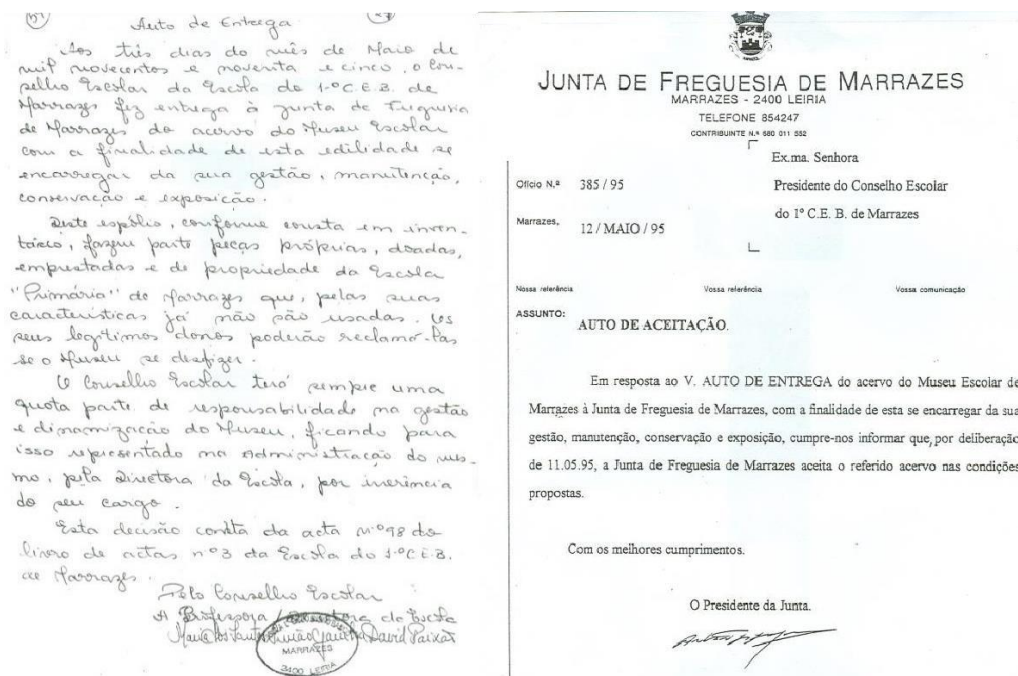 Auto de Entrega
Aos três dias do mês de Maio de
mil novecentos e noventa e cinco, o Con-
selho Escolar da Escola do 1.º C.E.B. de
Marrazes fez entrega à Junta de Freguesia
de Marrazes do acervo do Museu Escolar
com a finalidade de esta edilidade se
encarregar da sua gestão, manutenção,
conservação e exposição.
Deste espólio, conforme consta em inven-
tário, fazem parte peças próprias, doadas,
emprestadas e de propriedade da Escola
"Primária" de Marrazes que, pelas suas
características já não são usadas. Os
seus legítimos donos poderão reclamá-las
se o Museu se desfizer.
O Conselho Escolar terá sempre uma
quota parte de responsabilidade na gestão
e dinamização do Museu, ficando para
isso representado na Administração do mes-
mo, pela Directora da Escola, por inerência
do seu cargo.
Esta decisão consta da acta nº 98 do
livro de actas nº 3 da Escola do 1.º C.E.B.
de Marrazes.
Pelo Conselho Escolar
A Professora Directora da Escola
Maria dos Santos David Paixão
MARRAZES
2400 LEIRIA
JUNTA DE FREGUESIA DE MARRAZES
MARRAZES - 2400 LEIRIA
TELEFONE 854247
CONTRIBUINTE N.º 680 011 552
Ex.ma. Senhora
Presidente do Conselho Escolar
do 1º C.E. B. de Marrazes
Ofício N.º 385 / 95
Marrazes, 12 / MAIO / 95
Nossa referência Vossa referência Vossa comunicação
ASSUNTO: AUTO DE ACEITAÇÃO.
Em resposta ao V. AUTO DE ENTREGA do acervo do Museu Escolar de
Marrazes à Junta de Freguesia de Marrazes, com a finalidade de esta se encarregar da sua
gestão, manutenção, conservação e exposição, cumpre-nos informar que, por deliberação
de 11.05.95, a Junta de Freguesia de Marrazes aceita o referido acervo nas condições
propostas.
Com os melhores cumprimentos.
O Presidente da Junta.